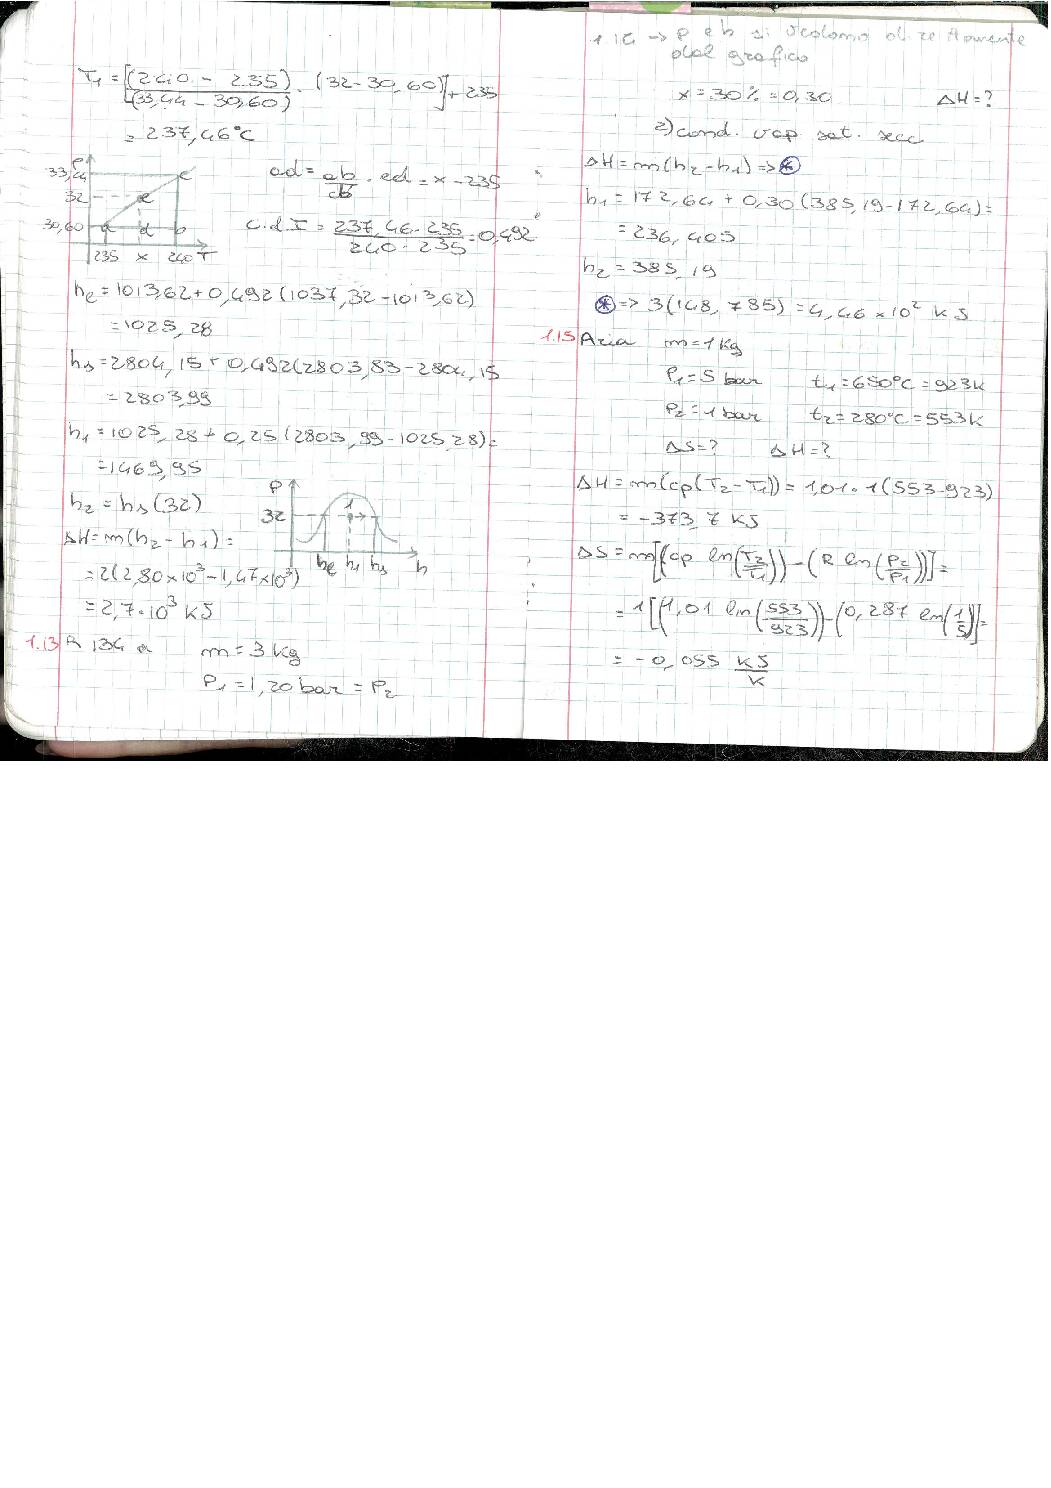 T₁ = [(240 - 235) / (33,44 - 30,60) · (32 - 30,60)] + 235
= 237,46°C
P
33,44
32
30,60
c
e
a
d
b
235 x 240 T
ad = ab/cb · ed = x - 235
c.d.I = (237,46 - 235) / (240 - 235) = 0,492
hℓ = 1013,62 + 0,492 (1037,32 - 1013,62)
= 1025,28
hs = 2804,15 + 0,492 (2803,83 - 2804,15
= 2803,99
h₁ = 1025,28 + 0,25 (2803,99 - 1025,28) =
= 1469,95
h₂ = hs (32)
ΔH = m (h₂ - h₁) =
= 2 (2,80 × 10³ - 1,47 × 10³)
= 2,7 · 10³ kJ
P
32
1
hℓ h₁ hs h
1.13 R 134 a m = 3 kg
P₁ = 1,20 bar = P₂
1.14 → P e h si vedono direttamente
dal grafico
x = 30% = 0,30 ΔH = ?
2) cond. vap sat. secc
ΔH = m (h₂ - h₁) => ⊛
h₁ = 172,64 + 0,30 (385,19 - 172,64) =
= 236,405
h₂ = 385,19
⊛ => 3 (148,785) = 4,46 × 10² kJ
1.15 Aria m = 1 kg
P₁ = 5 bar t₁ = 650°C = 923 k
P₂ = 1 bar t₂ = 280°C = 553 k
ΔS = ? ΔH = ?
ΔH = m (cp (T₂ - T₁)) = 1,01 · 1 (553 - 923)
= -373,7 kJ
ΔS = m [(cp ln (T₂/T₁)) - (R ln (P₂/P₁))] =
= 1 [(1,01 ln (553/923)) - (0,287 ln (1/5)] =
= -0,055 kJ/k